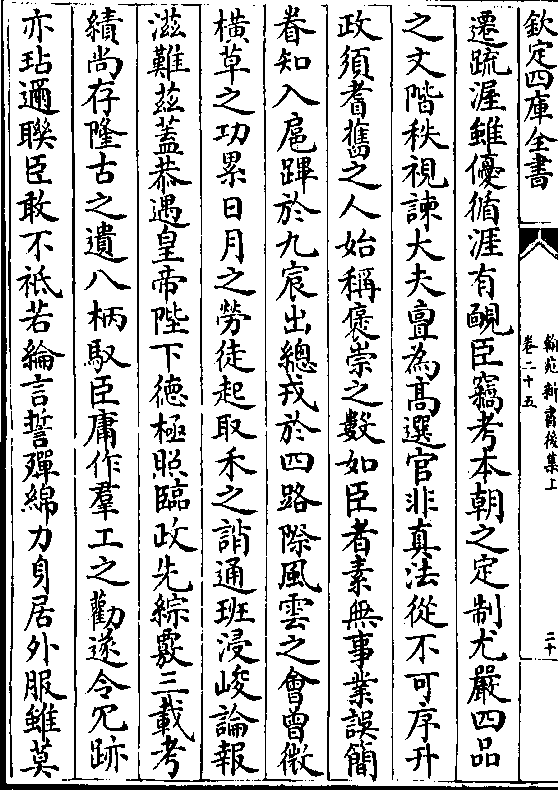 欽定四庫全書
翰苑新書後集上
卷二十五
二十
遷疏渥雖優循涯有靦臣竊考本朝之定制尤嚴四品
之文階秩視諫大夫亶為髙選官非真法從不可序升
政須耆舊之人始稱褒崇之數如臣者素無事業誤簡
眷知入扈蹕於九宸出總戎於四路際風雲之會曾微
横草之功累日月之勞徒起取禾之誚通班浸峻論報
滋難兹蓋恭遇皇帝陛下徳極照臨政先綜覈三載考
績尚存隆古之遺八柄馭臣庸作羣工之勸遂令冗跡
亦玷邇聨臣敢不祗若綸言誓殫綿力身居外服雖莫